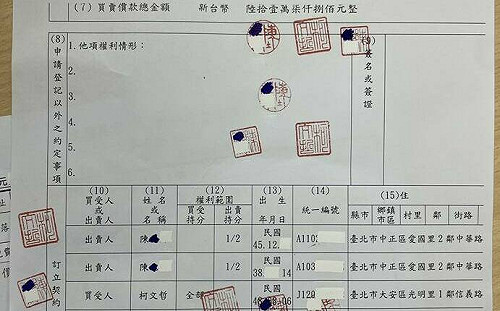 (7) 買賣價款總金額 新台幣 陸拾壹萬柒仟捌佰元整
(8)申請登記以外之約定事項
1.他項權利情形：
2.
3.
4.
5.
6.
(9)簽名或簽證
訂立契約
(10) 買受人或出賣人
(11) 姓名或名稱
(12) 權利範圍 買受持分 出賣持分
(13) 出生年月日
(14) 統一編號
(15)住
縣市 鄉鎮市區 村里 鄰 街路
出賣人 陳 1/2 民國45.12. A110 臺北市中正區愛國里2鄰中華路
出賣人 陳 1/2 民國38 14 A103 臺北市中正區愛國里2鄰中華路
買受人 柯文哲 全 民國 06 J120 臺北市大安區光明里1鄰信義路
元